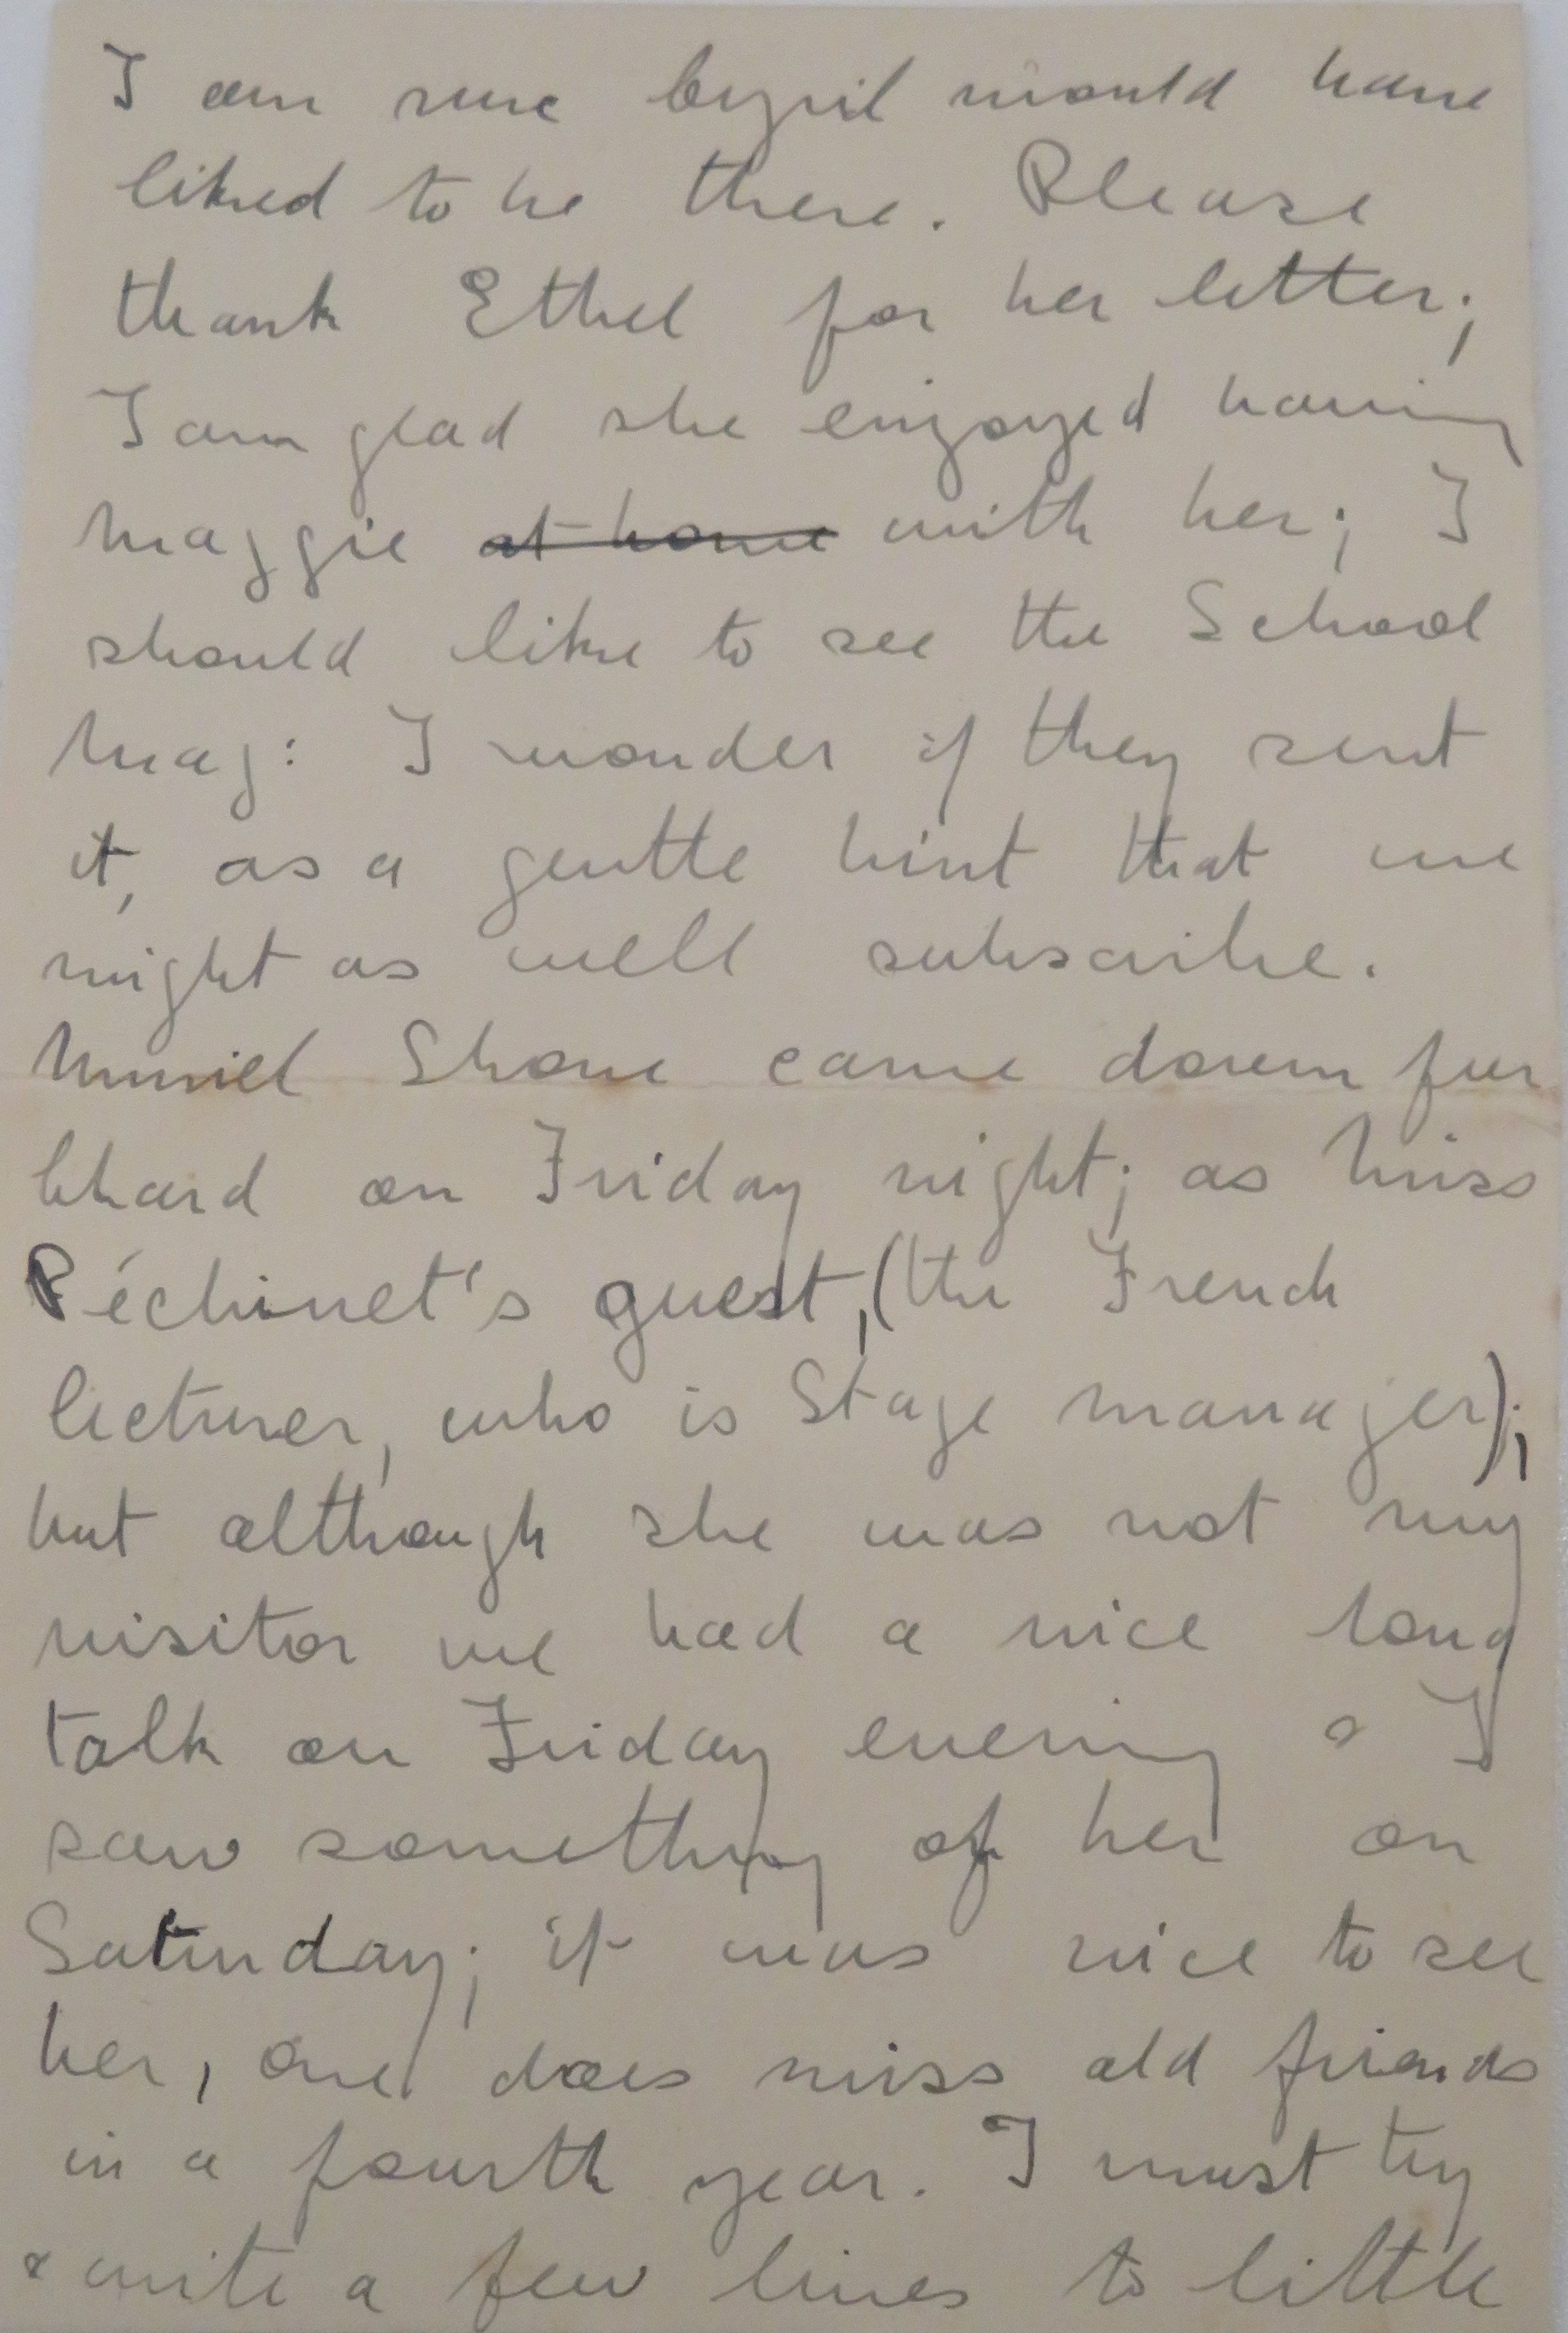 I am sure Cyril would have
liked to be there. Please
thank Ethel for her letter;
I am glad she enjoyed having
Maggie at home with her; I
should like to see the School
Mag: I wonder if they sent
it, as a gentle hint that we
might as well subscribe.
Muriel Shove came down for
on Friday night; as Miss
Péchinet's guest, (the French
lecturer, who is Stage manager);
but although she was not my
visitor we had a nice long
talk on Friday evening & I
saw something of her on
Saturday; it was nice to see
her, one does miss old friends
in a fourth year. I must try
& write a few lines to little